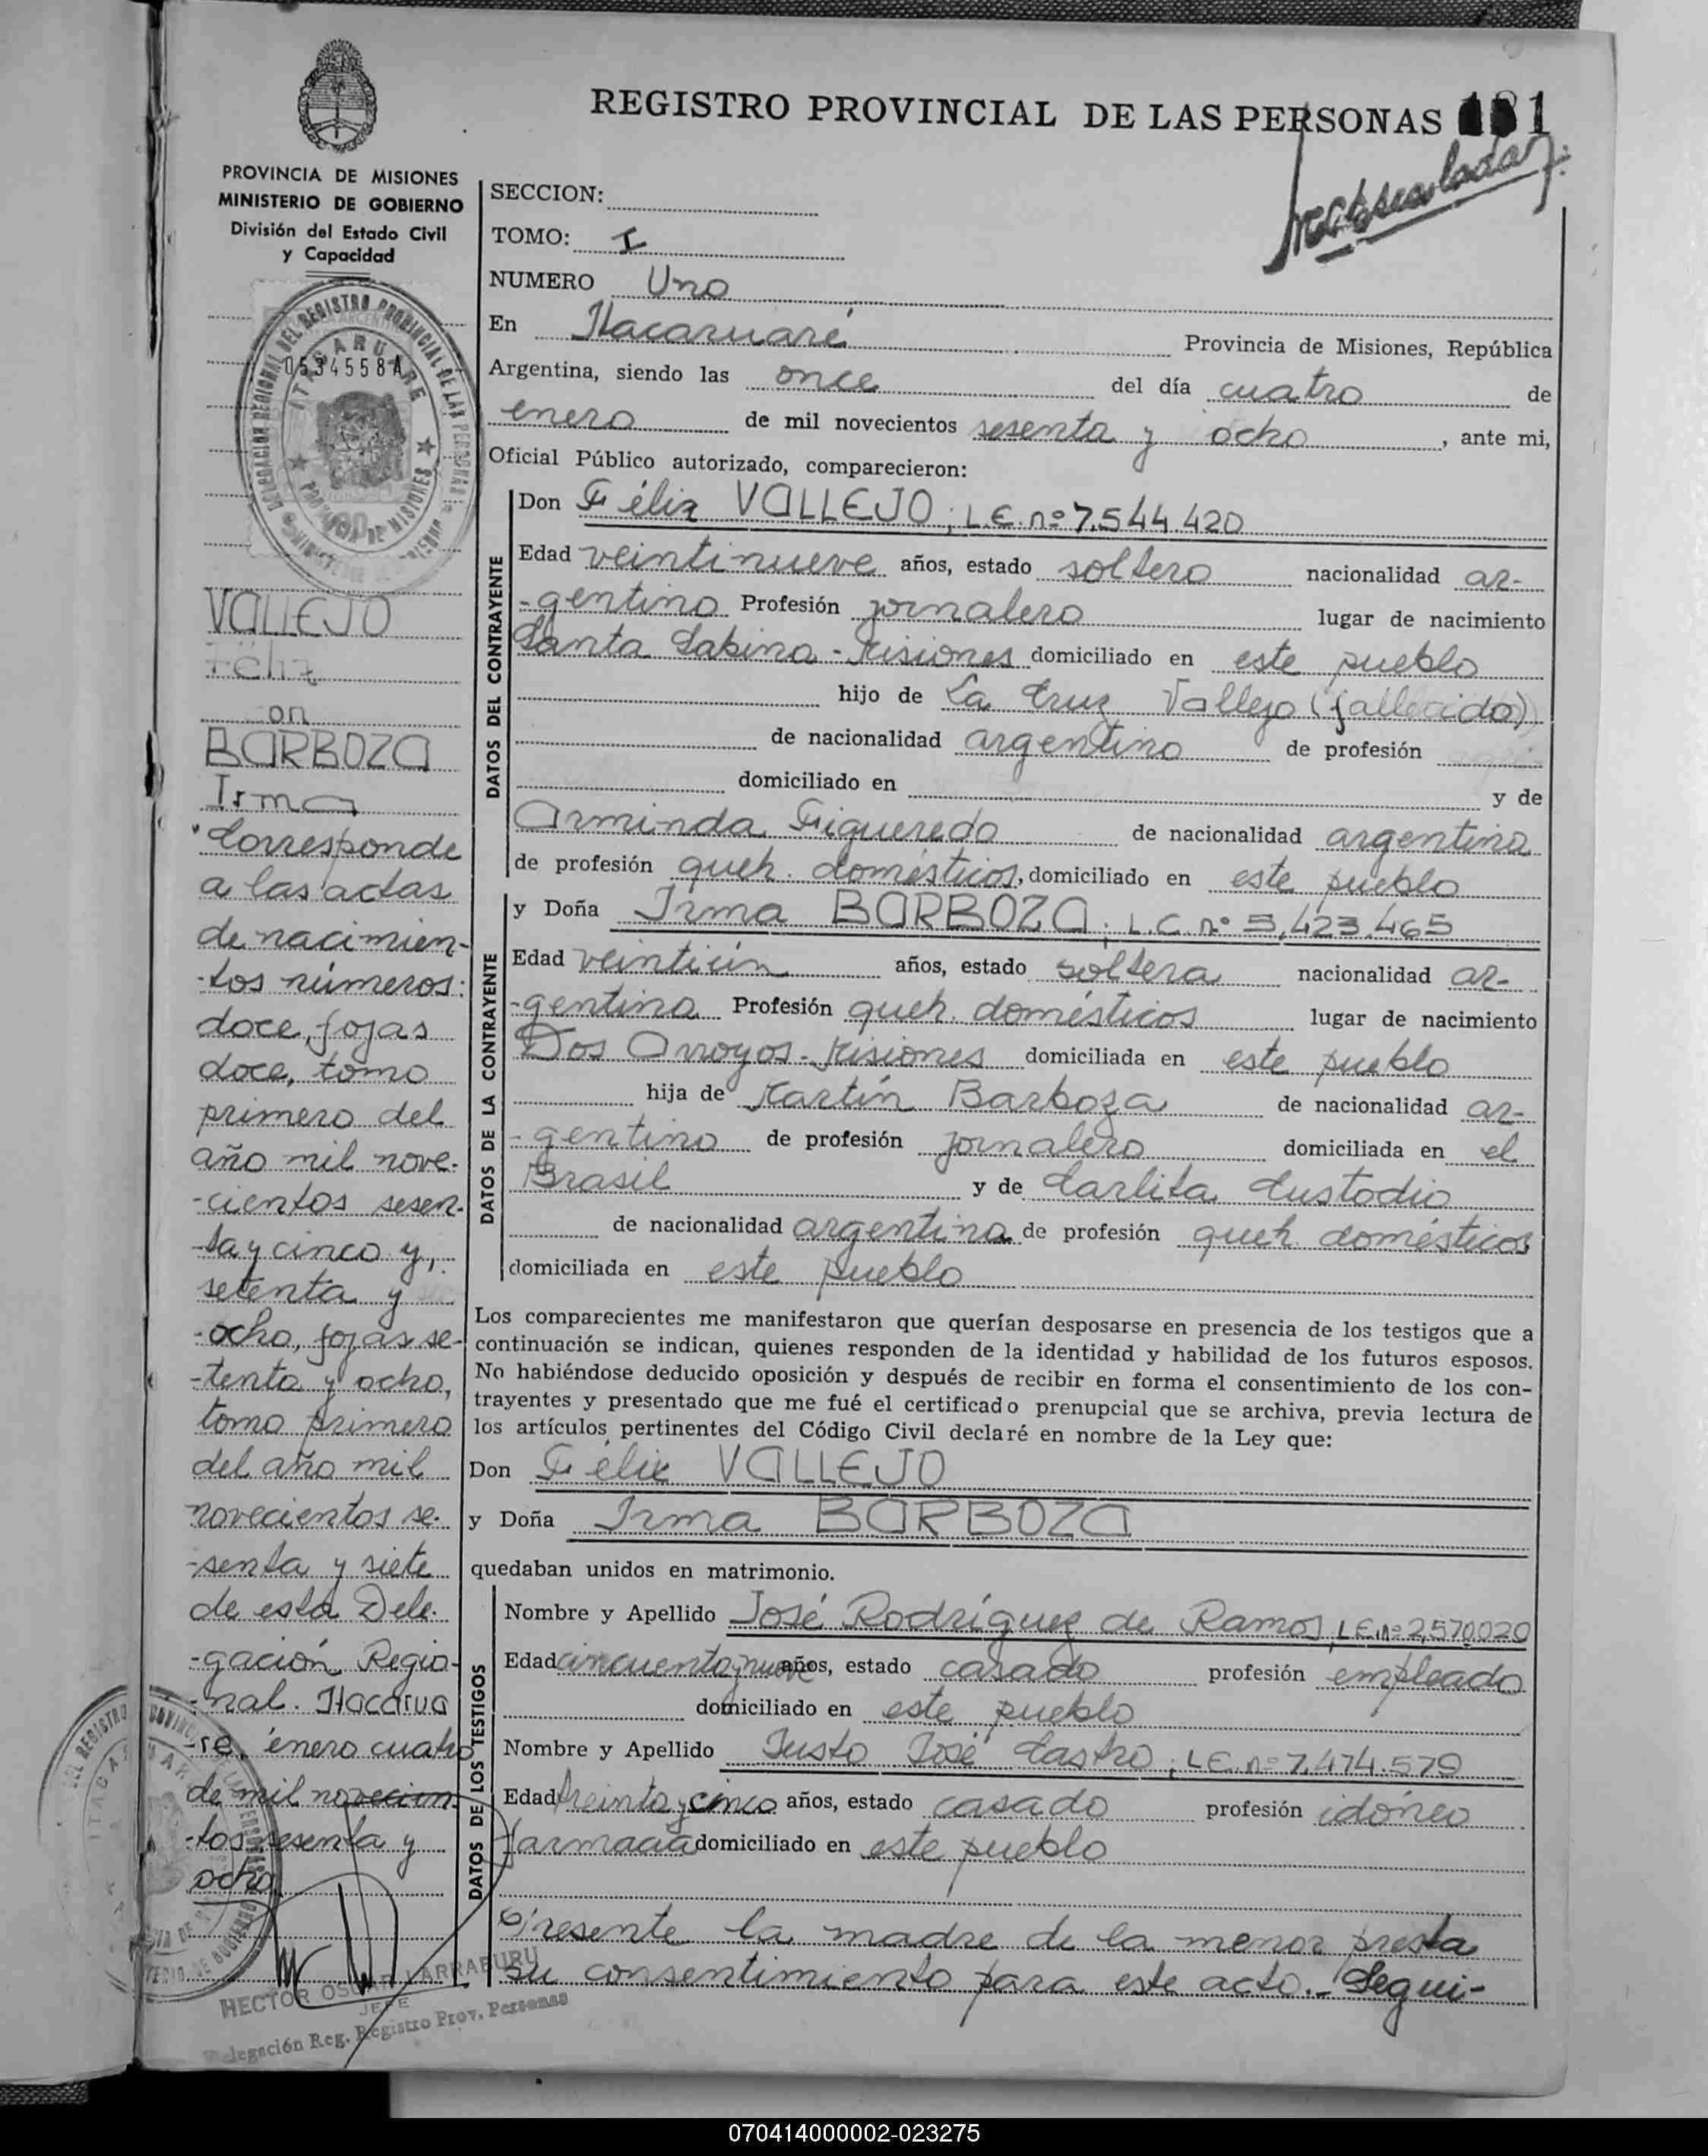 REGISTRO PROVINCIAL DE LAS PERSONAS 181
PROVINCIA DE MISIONES
MINISTERIO DE GOBIERNO
División del Estado Civil
y Capacidad
0534558A
VALLEJO
Félix
on
BARBOZA
Irma
Corresponde
a las actas
de nacimien-
-tos números:
doce, fojas
doce, tomo
primero del
año mil nove-
-cientos sesen-
-ta y cinco y,
setenta y
-ocho, fojas se-
-tenta y ocho,
tomo primero
del año mil
novecientos se-
-senta y siete
de esta Dele-
-gación Regio-
-nal. Itacarua
-ré, enero cuatro
de mil novecien-
-tos sesenta y
ocho
HECTOR OSCAR LARRABURU
JEFE
Delegación Reg. Registro Prov. Personas
SECCION:
TOMO: I
NUMERO Uno
En Itacaruaré Provincia de Misiones, República
Argentina, siendo las once del día cuatro de
enero de mil novecientos sesenta y ocho, ante mi,
Oficial Público autorizado, comparecieron:
DATOS DEL CONTRAYENTE
Don Félix VALLEJO, L.E. nº 7.544.420
Edad veintinueve años, estado soltero nacionalidad ar-
-gentino Profesión jornalero lugar de nacimiento
Santa Sabina - Misiones domiciliado en este pueblo
hijo de La Cruz Vallejo (fallecido)
de nacionalidad argentino de profesión
domiciliado en y de
Arminda Figueredo de nacionalidad argentina
de profesión queh. domésticos, domiciliado en este pueblo
DATOS DE LA CONTRAYENTE
y Doña Irma BARBOZA, L.C. nº 5.423.465
Edad veintiún años, estado soltera nacionalidad ar-
-gentina Profesión queh. domésticos lugar de nacimiento
Dos Arroyos - Misiones domiciliada en este pueblo
hija de Martín Barboza de nacionalidad ar-
-gentino de profesión jornalero domiciliada en el
Brasil y de Carlita Custodio
de nacionalidad argentina de profesión queh. domésticos
domiciliada en este pueblo
Los comparecientes me manifestaron que querían desposarse en presencia de los testigos que a
continuación se indican, quienes responden de la identidad y habilidad de los futuros esposos.
No habiéndose deducido oposición y después de recibir en forma el consentimiento de los con-
trayentes y presentado que me fué el certificado prenupcial que se archiva, previa lectura de
los artículos pertinentes del Código Civil declaré en nombre de la Ley que:
Don Félix VALLEJO
y Doña Irma BARBOZA
quedaban unidos en matrimonio.
DATOS DE LOS TESTIGOS
Nombre y Apellido José Rodríguez de Ramos, L.E. nº 2.570.020
Edad cincuenta y nueve años, estado casado profesión empleado
domiciliado en este pueblo
Nombre y Apellido Justo José Castro, L.E. nº 7.474.579
Edad treinta y cinco años, estado casado profesión idóneo
farmacia domiciliado en este pueblo
Presente la madre de la menor presta
su consentimiento para este acto.- Segui-
070414000002-023275